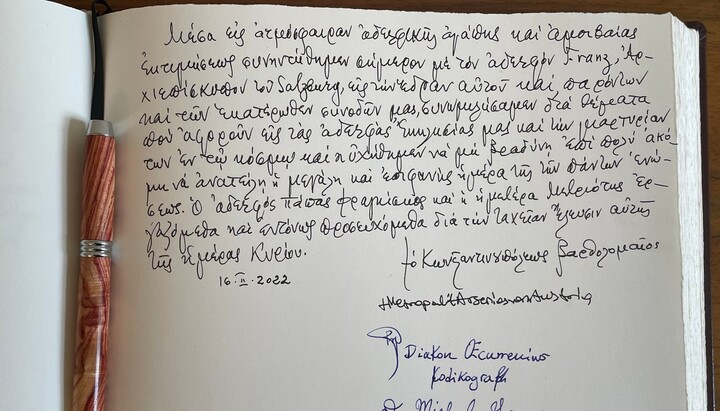 Μέσα εἰς ἀτμόσφαιραν ἀδελφικῆς ἀγάπης καί ἀμοιβαίας
ἐκτιμήσεως συνηντήθημεν σήμερον μέ τόν ἀδελφόν Franz, Ἀρ-
χιεπίσκοπον τοῦ Salzburg, εἰς τήν ἕδραν αὐτοῦ καί, παρόντων
καί τῶν ἑκατέρωθεν συνοδῶν μας, συνωμιλήσαμεν διά θέματα
πού ἀφοροῦν εἰς τάς ἀδελφάς Ἐκκλησίας μας καί τήν μαρτυρίαν
των ἐν τῷ κόσμῳ, καί ηὐχήθημεν νά μή βραδύνῃ ἐπί πολύ ἀκό-
μη νά ἀνατείλῃ ἡ μεγάλη καί ἐπιφανής ἡμέρα τῆς τῶν πάντων ἑνώ-
σεως. Ὁ ἀδελφός πάπας Φραγκίσκος καί ἡ ἡμετέρα Μετριότης ἐρ-
γαζόμεθα καί ἐντόνως προσευχόμεθα διά τήν ταχεῖαν ἔλευσιν αὐτῆς
τῆς ἡμέρας Κυρίου.
ὁ Κωνσταντινουπόλεως Βαρθολομαῖος
16.II.2022
+Metropolit Arsenios von Austria
Diakon Œcumenius
Kodikograph